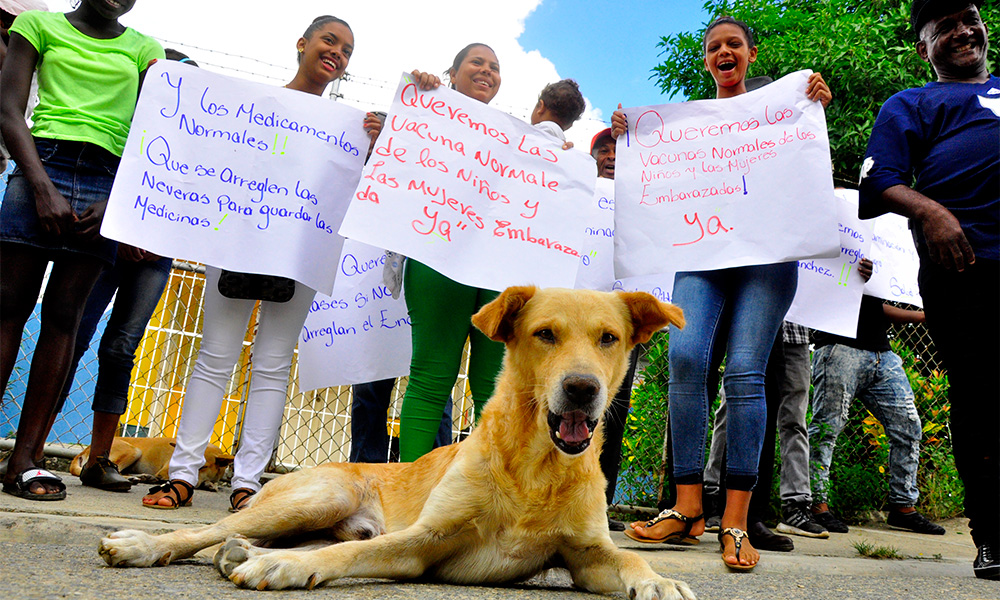 Y los Medicamentos
Normales!!
¡Que se Arreglen las
Neveras Para guardar las
Medicinas!
Queremos Las
Vacuna Normale
de los Niños y
Las Mujeres Embaraza
da Ya"
¡Queremos las
Vacunas Normales de los
Niños y las Mujeres
Embarazadas!
Ya.
Queremos
Clases Si No
Arreglan el